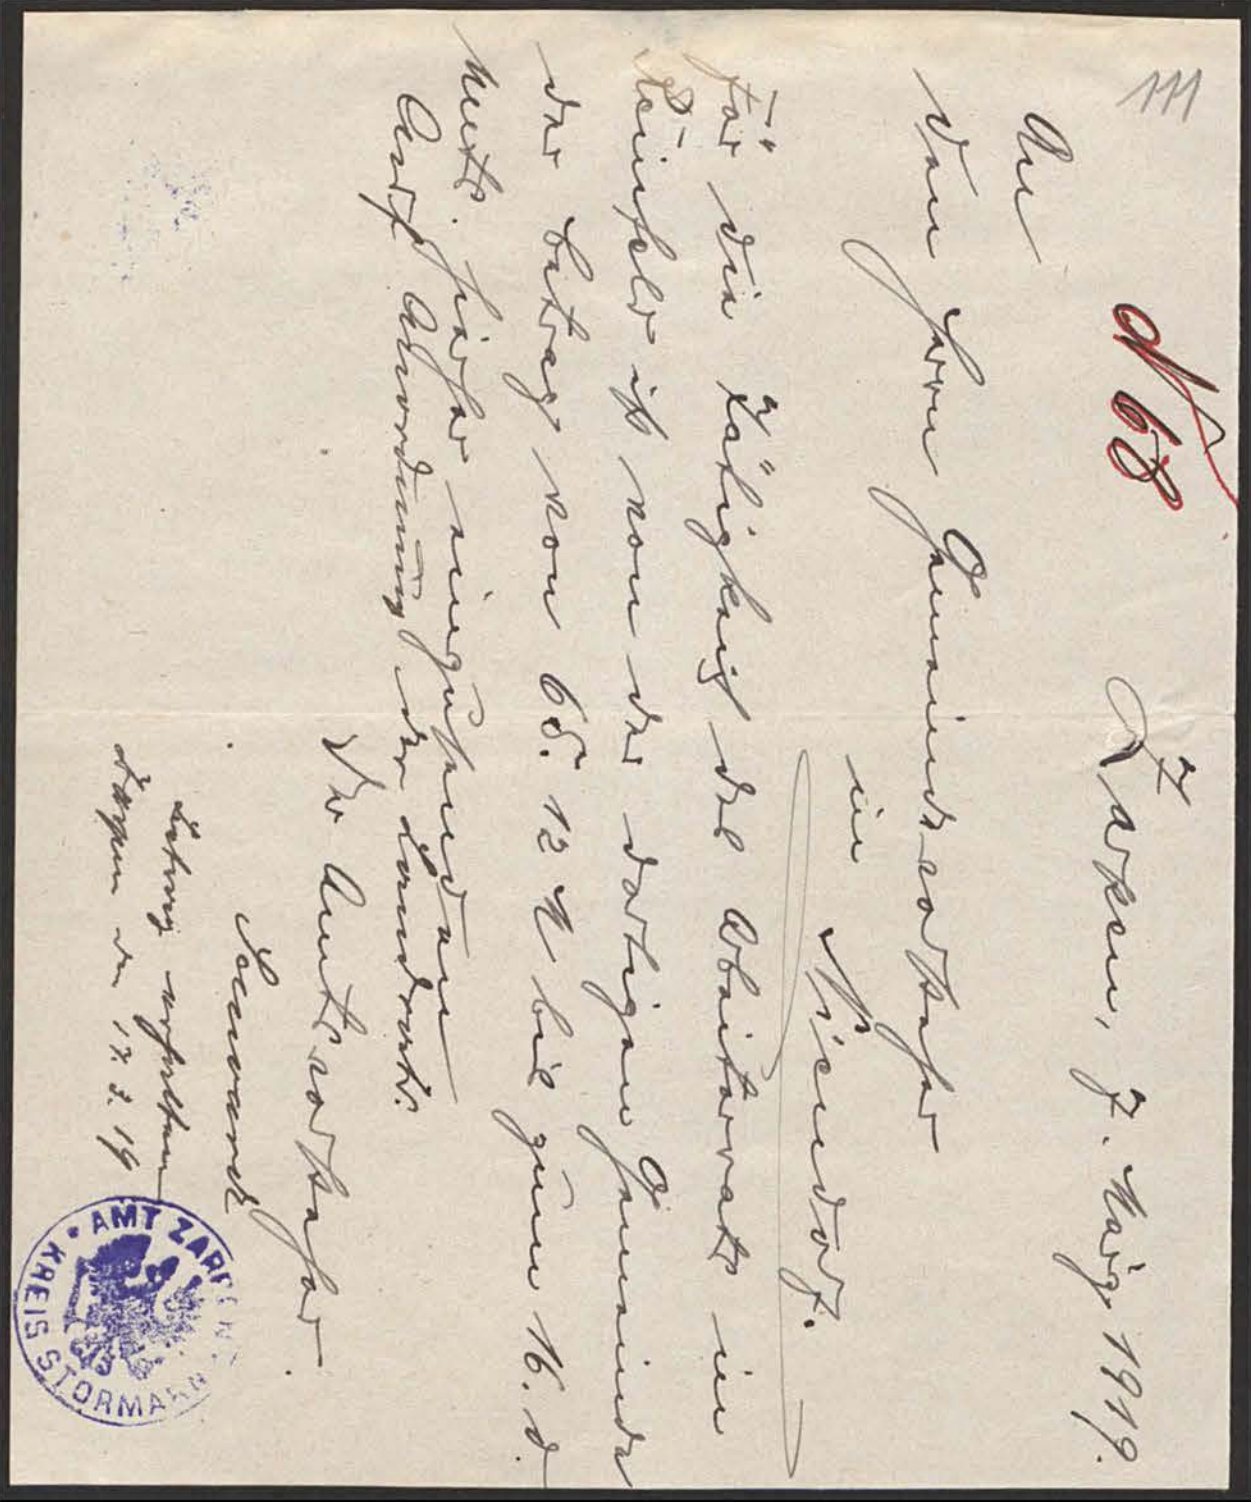 111
№ 68
Zarpen, 7. März 1919.
An
den Herrn Gemeindevorsteher
in Niendorf.
Für die Tätigkeit des Arbeiterrats in
Reinfeld ist von der dortigen Gemeinde
der Betrag von 65.12 M bis zum 16. d.
Mts. hierher einzusenden
Auf Anordnung des Landrats.
Der Amtsvorsteher.
Betrag erhalten
Zarpen den 17.3.19
AMT ZARPEN
KREIS STORMARN